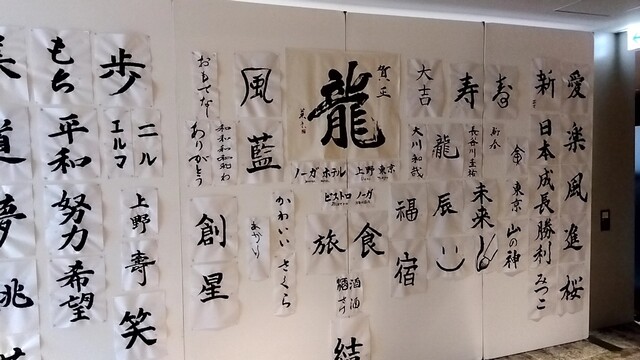 愛
楽
風
進
桜
新
日本
成長
勝利
みつこ
寿
金
東京
山の神
寿
長谷川
未来
大吉
龍
大川和哉
辰
福
宿
賀正
龍
ノーガホテル 上野東京
ビストロ ノーガ
旅
食
結
風
藍
かわいい さくら
あかり
おもてなし
和和和和わ
ありがとう
創
星
歩
ニール
エルマ
上野
寿
笑
もち
平和
努力
希望
美
道
夢
桃